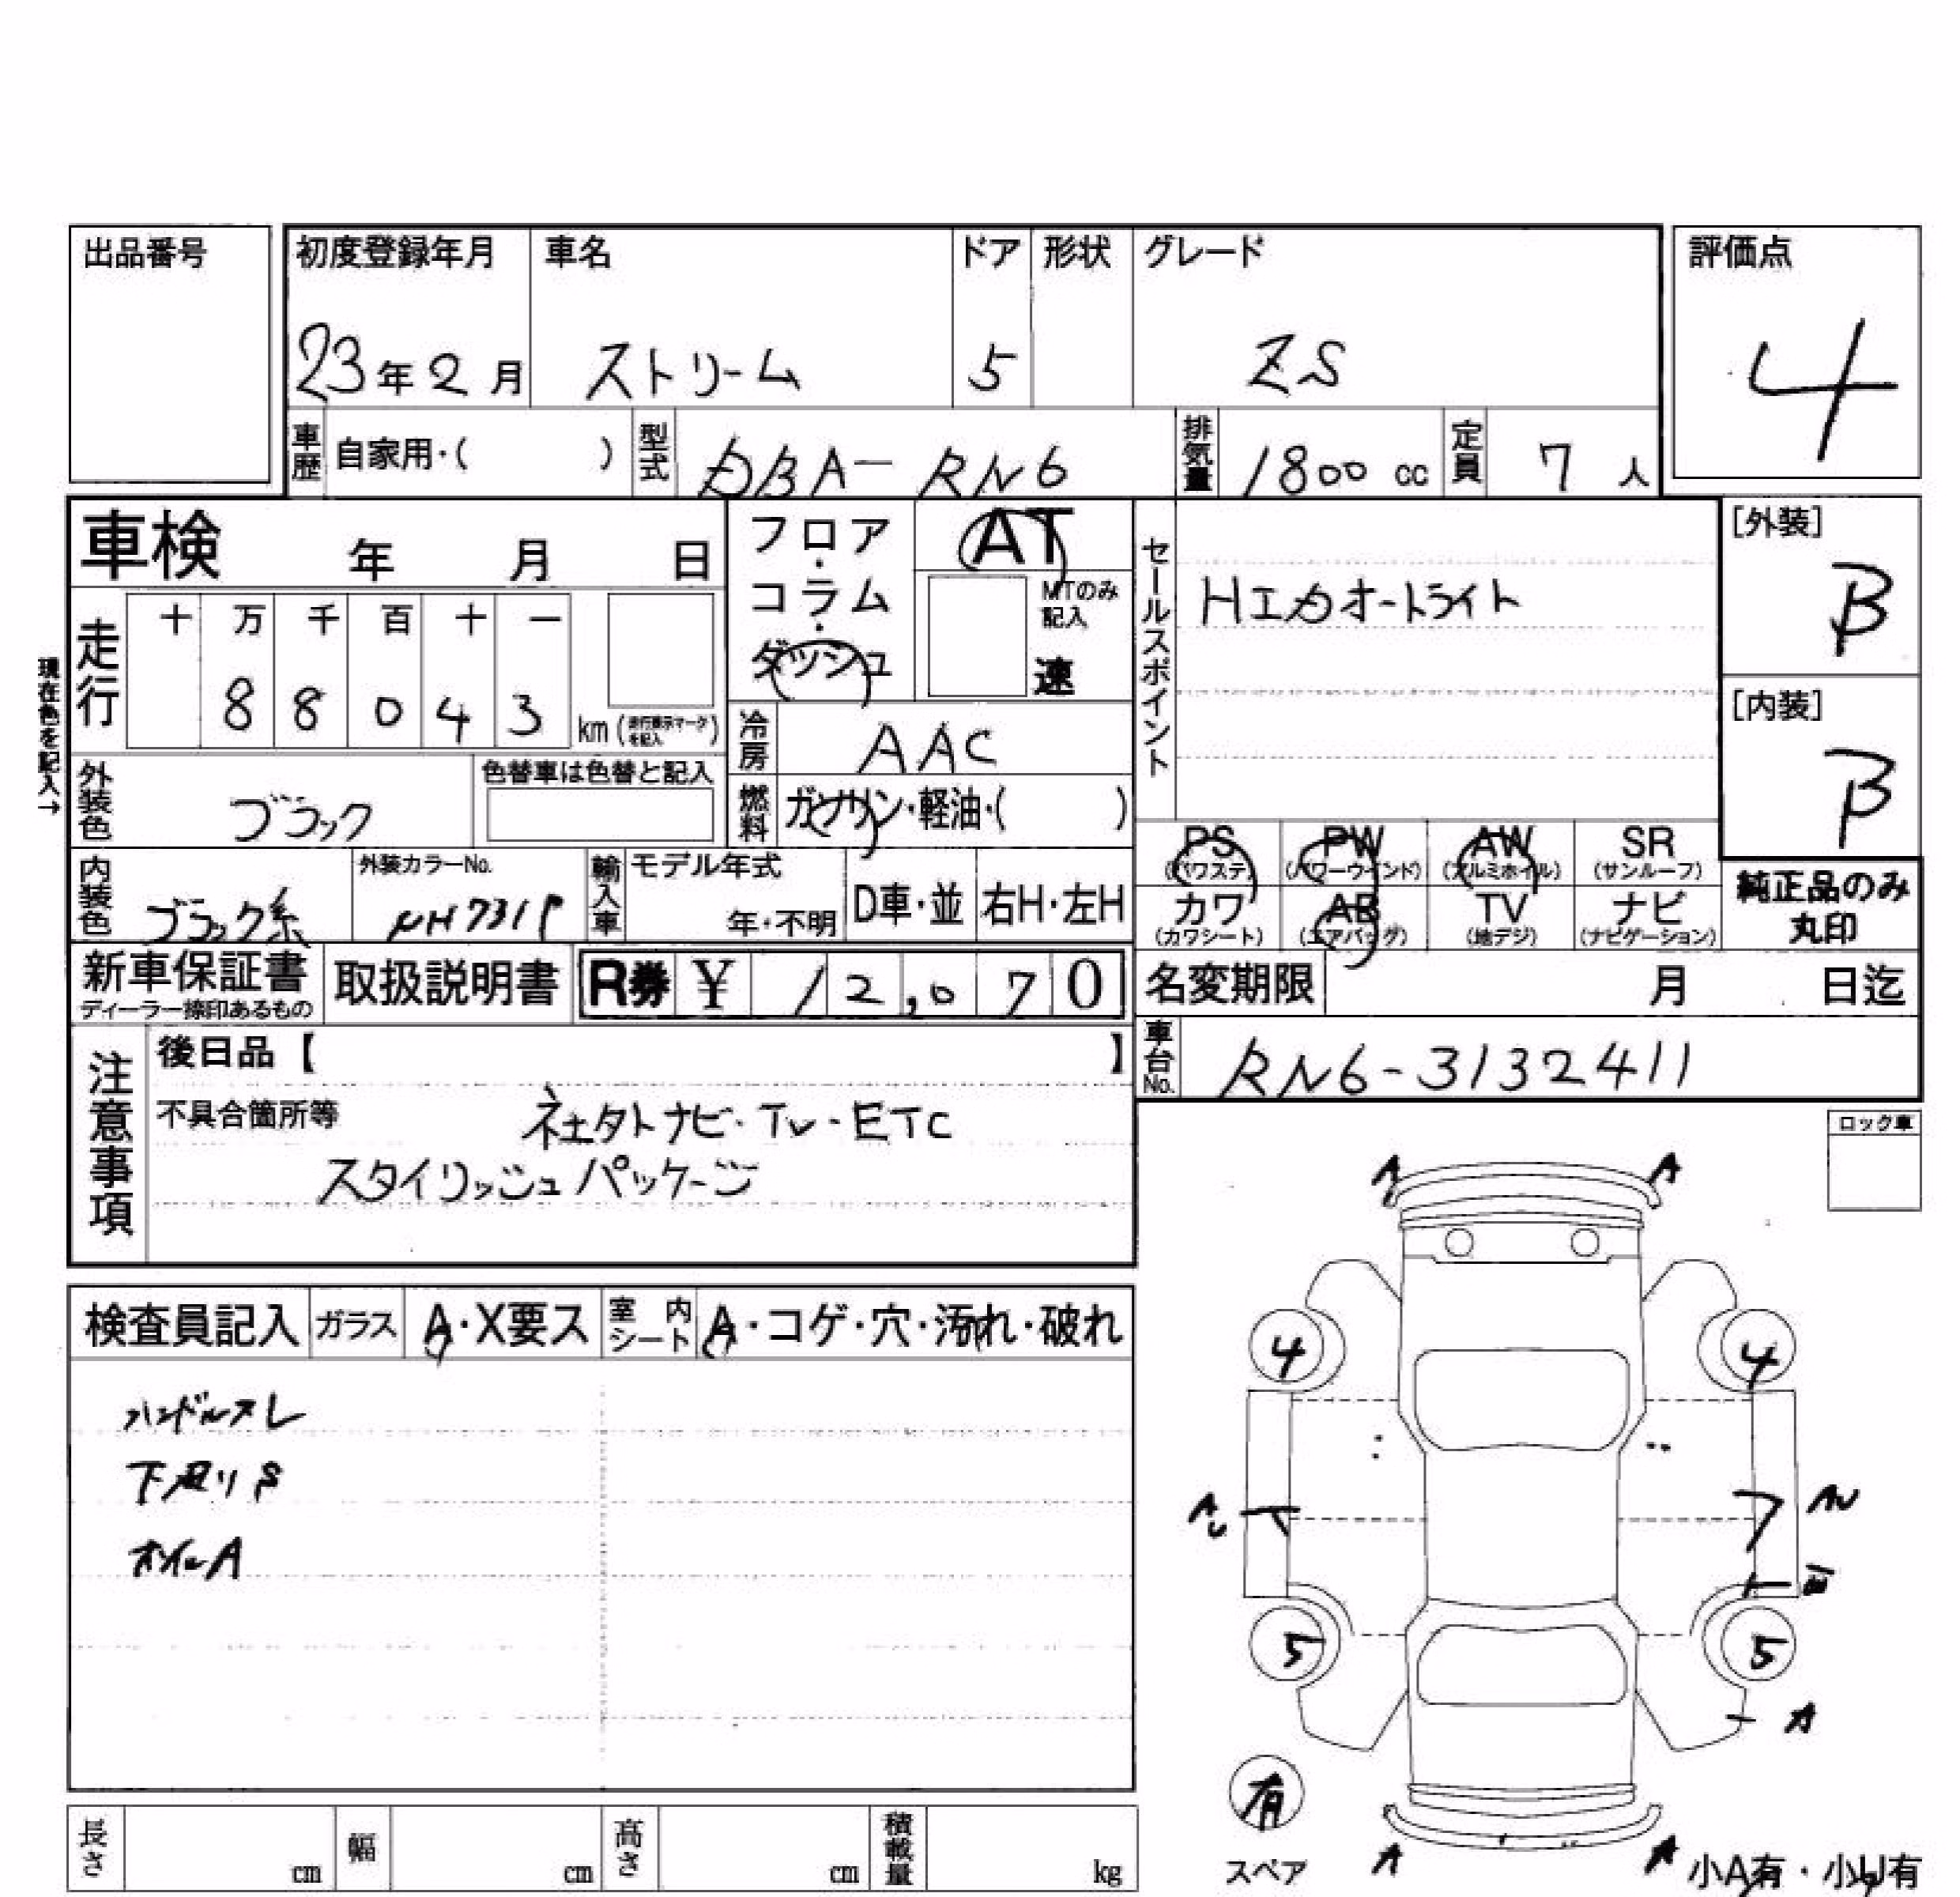 出品番号
初度登録年月 車名 ドア 形状 グレード 評価点
23年2月 ストリーム 5 ZS 4
車歴 自家用・( ) 型式 DBA-RN6 排気量 1800cc 定員 7人
車検 年 月 日
フロア・コラム・ダッシュ
AT
MTのみ記入
速
セールスポイント
HIDオートライト
[外装]
B
[内装]
B
現在色を記入→
走行
十 万 千 百 十 一
8 8 0 4 3 km(走行表示マークを記入)
冷房 AAC
外装色 ブラック
色替車は色替と記入
燃料 ガソリン・軽油・( )
PS PW AW SR
(パワステ) (パワーウインド) (アルミホイル) (サンルーフ)
カワ AB TV ナビ
(カワシート) (エアバッグ) (地デジ) (ナビゲーション)
純正品のみ
丸印
内装色 ブラック系
外装カラーNo.
NH731P
輸入車 モデル年式
年・不明 D車・並 右H・左H
新車保証書
ディーラー捺印あるもの
取扱説明書
R券 ¥ 12,070
名変期限 月 日迄
車台No. RN6-3132411
注意事項
後日品【 】
不具合箇所等 社外ナビ・TV・ETC
スタイリッシュパッケージ
ロック車
A A
検査員記入 ガラス A・X要ス 室内シート A・コゲ・穴・汚れ・破れ
4 4
ハンドルスレ
下廻りS
A
5 5
A
有
スペア
A A
小A有・小U有
長さ cm 幅 cm 高さ cm 積載量 kg